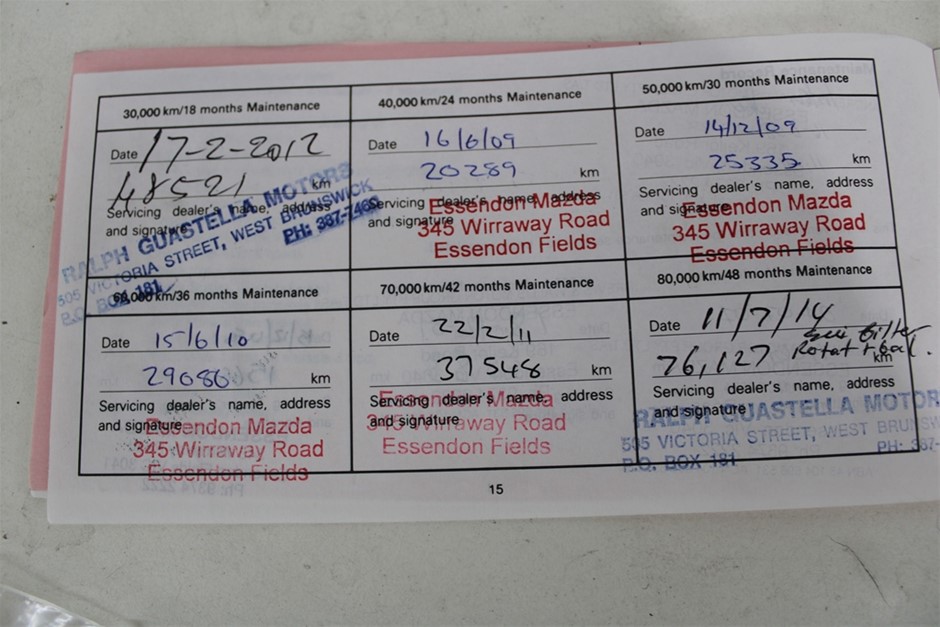 30,000 km/18 months Maintenance
Date 17-2-2012
48521 km
Servicing dealer's name, address
and signature
RALPH GUASTELLA MOTORS
505 VICTORIA STREET, WEST BRUNSWICK
P.O. BOX 181 PH: 387-746
40,000 km/24 months Maintenance
Date 16/6/09
20289 km
Servicing dealer's name, address
and signature
Essendon Mazda
345 Wirraway Road
Essendon Fields
50,000 km/30 months Maintenance
Date 14/12/09
25335 km
Servicing dealer's name, address
and signature
Essendon Mazda
345 Wirraway Road
Essendon Fields
60,000 km/36 months Maintenance
Date 15/6/10
29086 km
Servicing dealer's name, address
and signature
Essendon Mazda
345 Wirraway Road
Essendon Fields
70,000 km/42 months Maintenance
Date 22/2/11
37548 km
Servicing dealer's name, address
and signature
Essendon Mazda
345 Wirraway Road
Essendon Fields
80,000 km/48 months Maintenance
Date 11/7/14
76,127 km
Servicing dealer's name, address
and signature
RALPH GUASTELLA MOTOR
505 VICTORIA STREET, WEST BRUNSW
P.O. BOX 181 PH: 387-
15